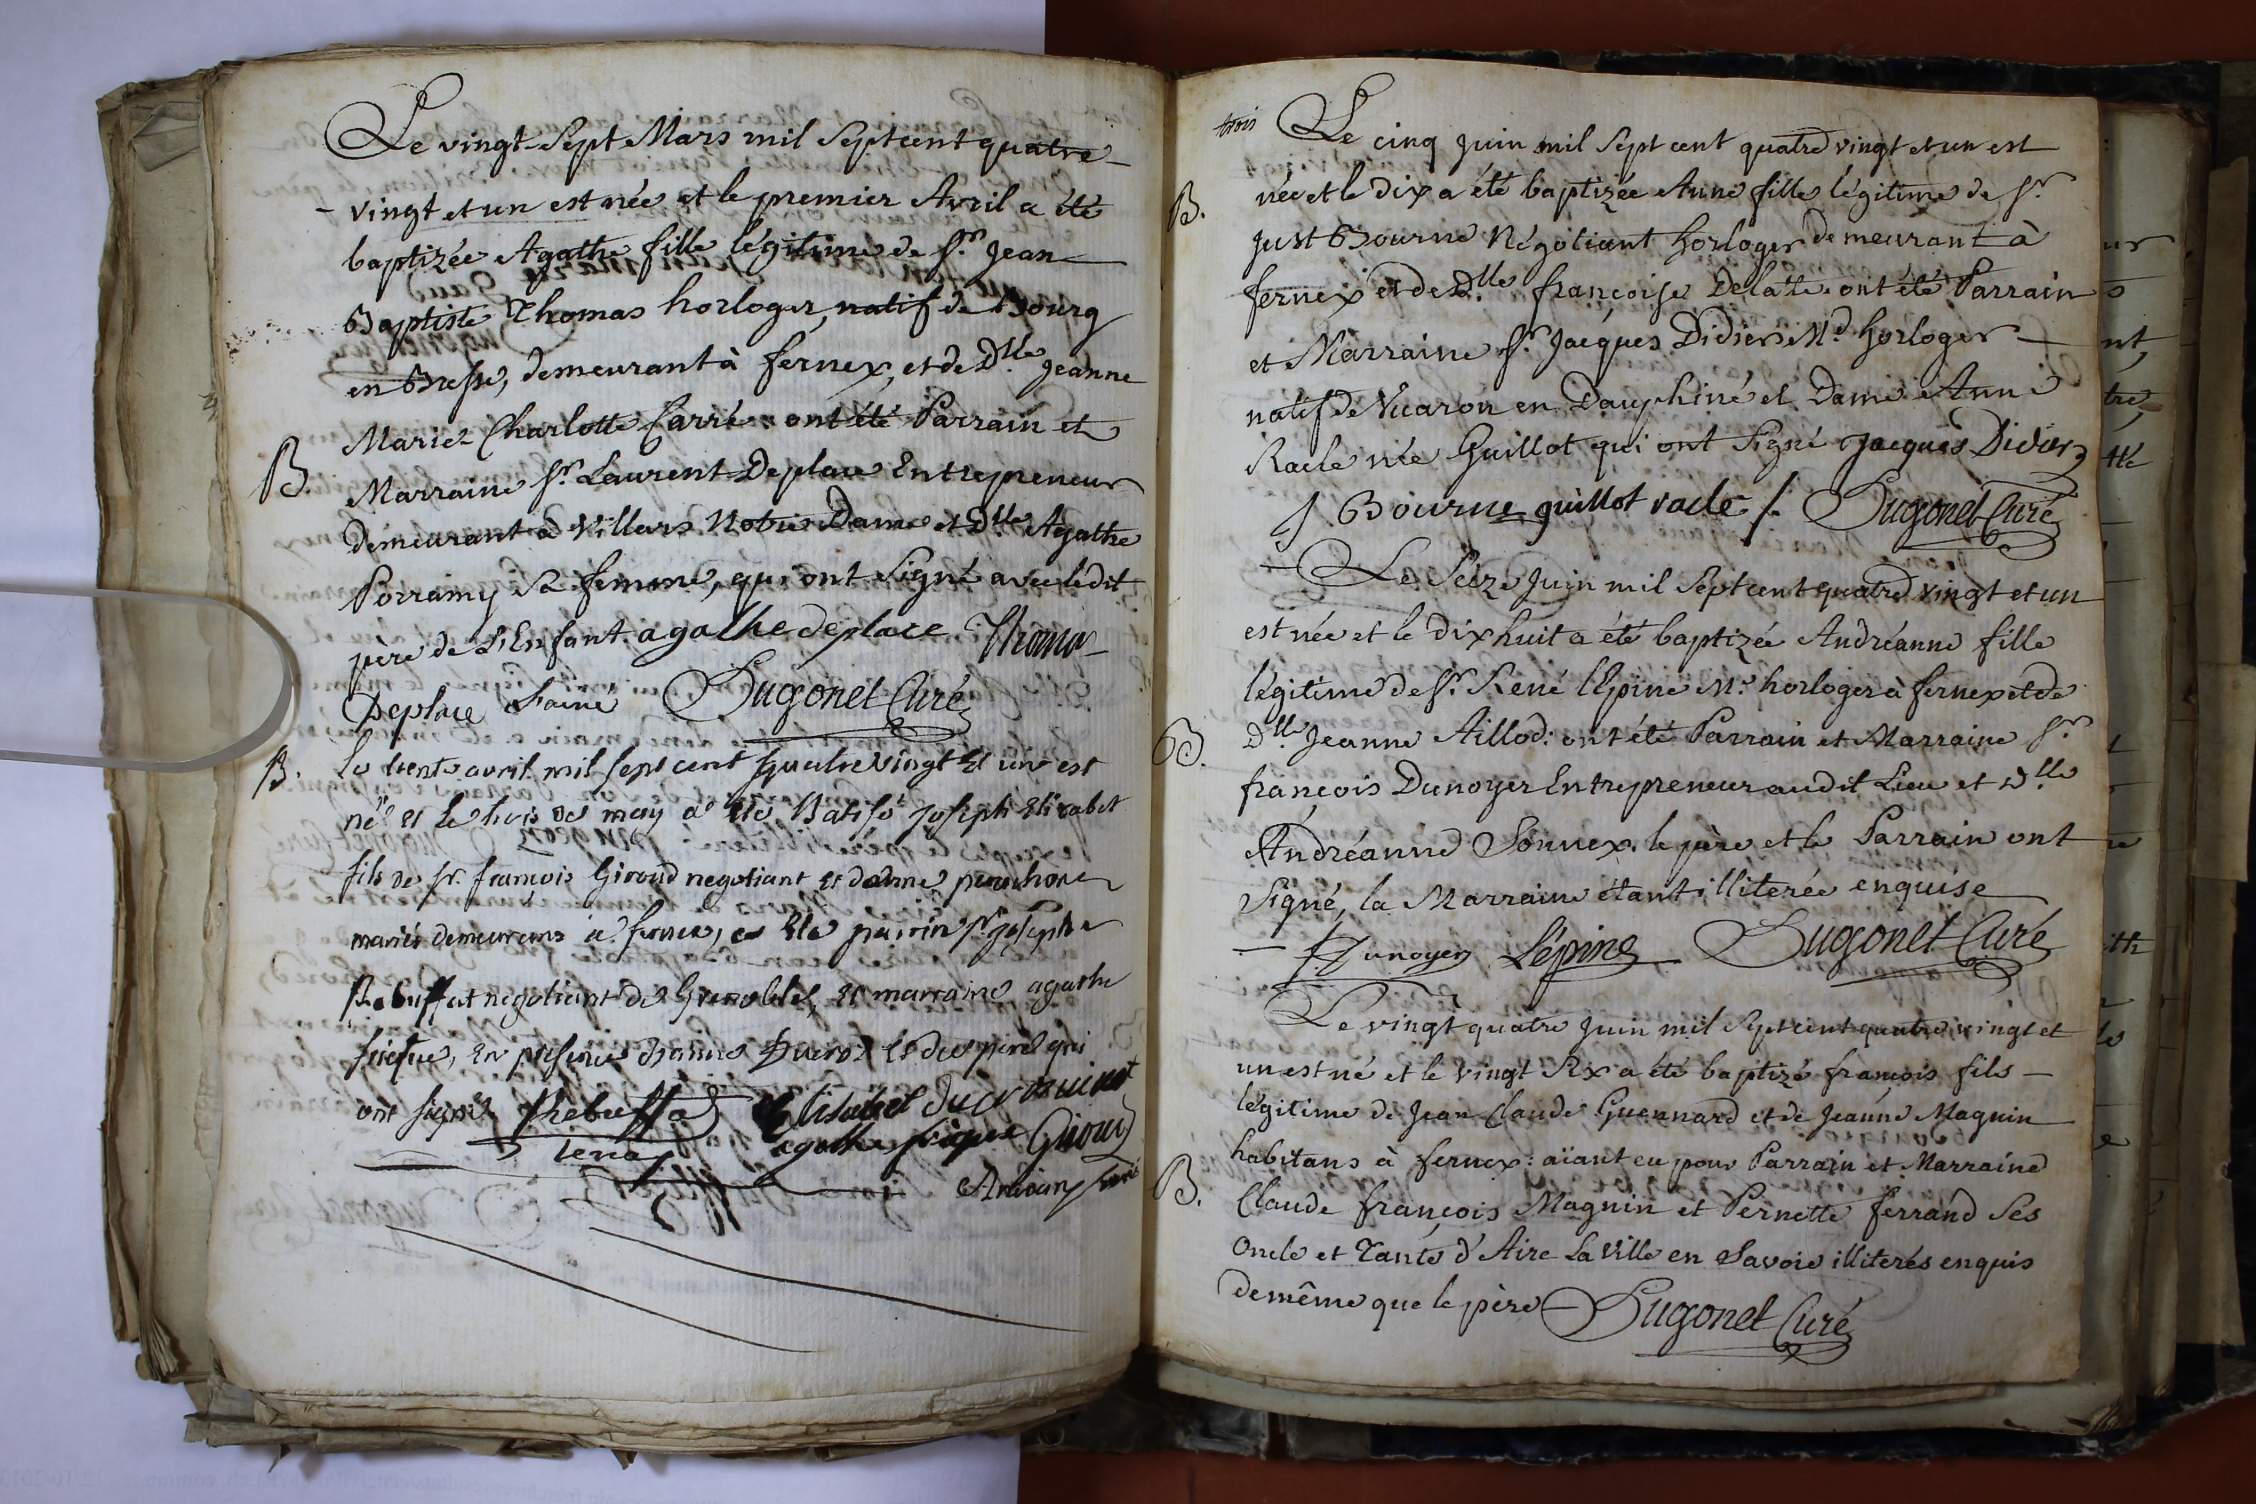 Le vingt-Sept Mars mil Sept cent quatre
vingt et un est née et le premier Avril a été
baptizée Agathe fille légitime de Sr. Jean
Baptiste Thomas horloger, natif de Bourg
en Bresse, demeurant à fernex, et de Dlle. Jeanne
Marie Charlotte Carré: ont été Parrain et
B.
Marraine Sr. Laurent Deplace Entrepreneur
demeurant à Villars Notre Dame et Dlle Agathe
Porramy Sa femme, qui ont Signé avec ledit
père de L'Enfant. agathe deplace Thomas
Deplace L'ainé Dugonet Curé
B. Le trente avril mil sept cent quatre vingt et un est
né et le trois de may a été Batisé joseph Elisabet
fils de sr. francois Giroud negotiant et danne
mariés demeurans a fernex, a été parrin sr. joseph
Rebuffat negotiant de Grenoble, et marraine agathe
en presence et du pere qui
ont signé Rebuffat Elisabet
agathe Giroud
curé
trois
Le cinq Juin mil Sept cent quatre vingt et un est
B. née et le dix a été baptizée Anne fille légitime de Sr.
Just Bourne Négotiant horloger demeurant à
fernex et de Dlle. françoise Delate. ont été Parrain
et Marraine Sr. Jacques Didier Md. horloger
natif de en Dauphiné et Dame Anne
Racle née Guillot qui ont Signé Jacques Didier
J Bourne guillot racle /. Dugonet Curé
Le Seize Juin mil Sept cent quatre vingt et un
est née et le dix huit a été baptizée Andréanne fille
légitime de Sr. René l'Epine Md. horloger à fernex et de
B. Dlle. Jeanne Aillod: ont été Parrain et Marraine Sr.
françois Dunoyer Entrepreneur audit Lieu et Dlle
Andréanne Sonnex. le père et le Parrain ont
Signé, la Marraine étant illiterée enquise
f Dunoyer Lépine Dugonet Curé
Le vingt quatre Juin mil Sept cent quatre vingt et
un est né et le vingt Six a été baptizé françois fils
légitime de Jean Claude Guennard et de Jeanne Magnin
habitans à fernex: aïant eu pour Parrain et Marraine
B. Claude françois Magnin et Pernette ferrand Ses
Oncle et Tante d'Aire La Ville en Savoie illiterés enquis
de même que le père Dugonet Curé